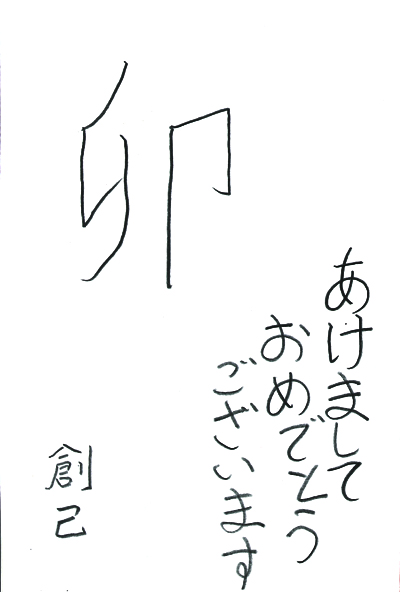 卯
あけまして
おめでとう
ございます
創己